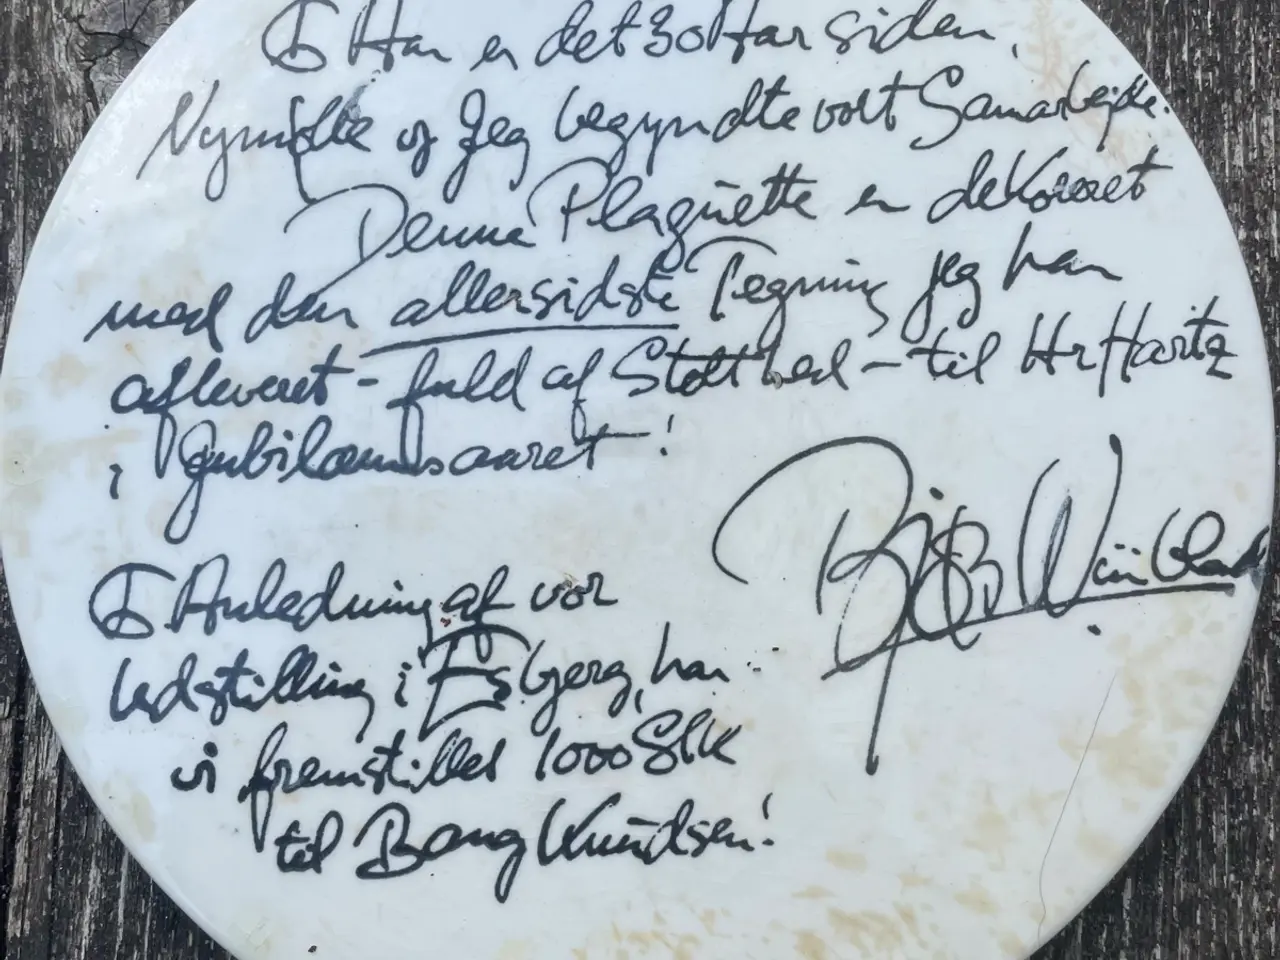 I Aar er det 30 Aar siden,
Nymølle og Jeg begyndte vort Samarbejde.
Denne Plaquette er dekoreret
med den allersidste Tegning jeg har
afleveret - fuld af Stolthed - til Hr Hartz
i Jubilæumsaaret!
Bjørn Wiinblad
I Anledning af vor
Udstilling i Esbjerg, har
vi fremstillet 1000 Stk
til Bang Knudsen!